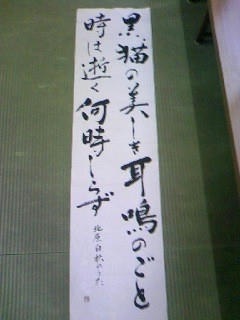 黒猫の美しき耳鳴のごと
時は逝く何時しらず
北原白秋のうた